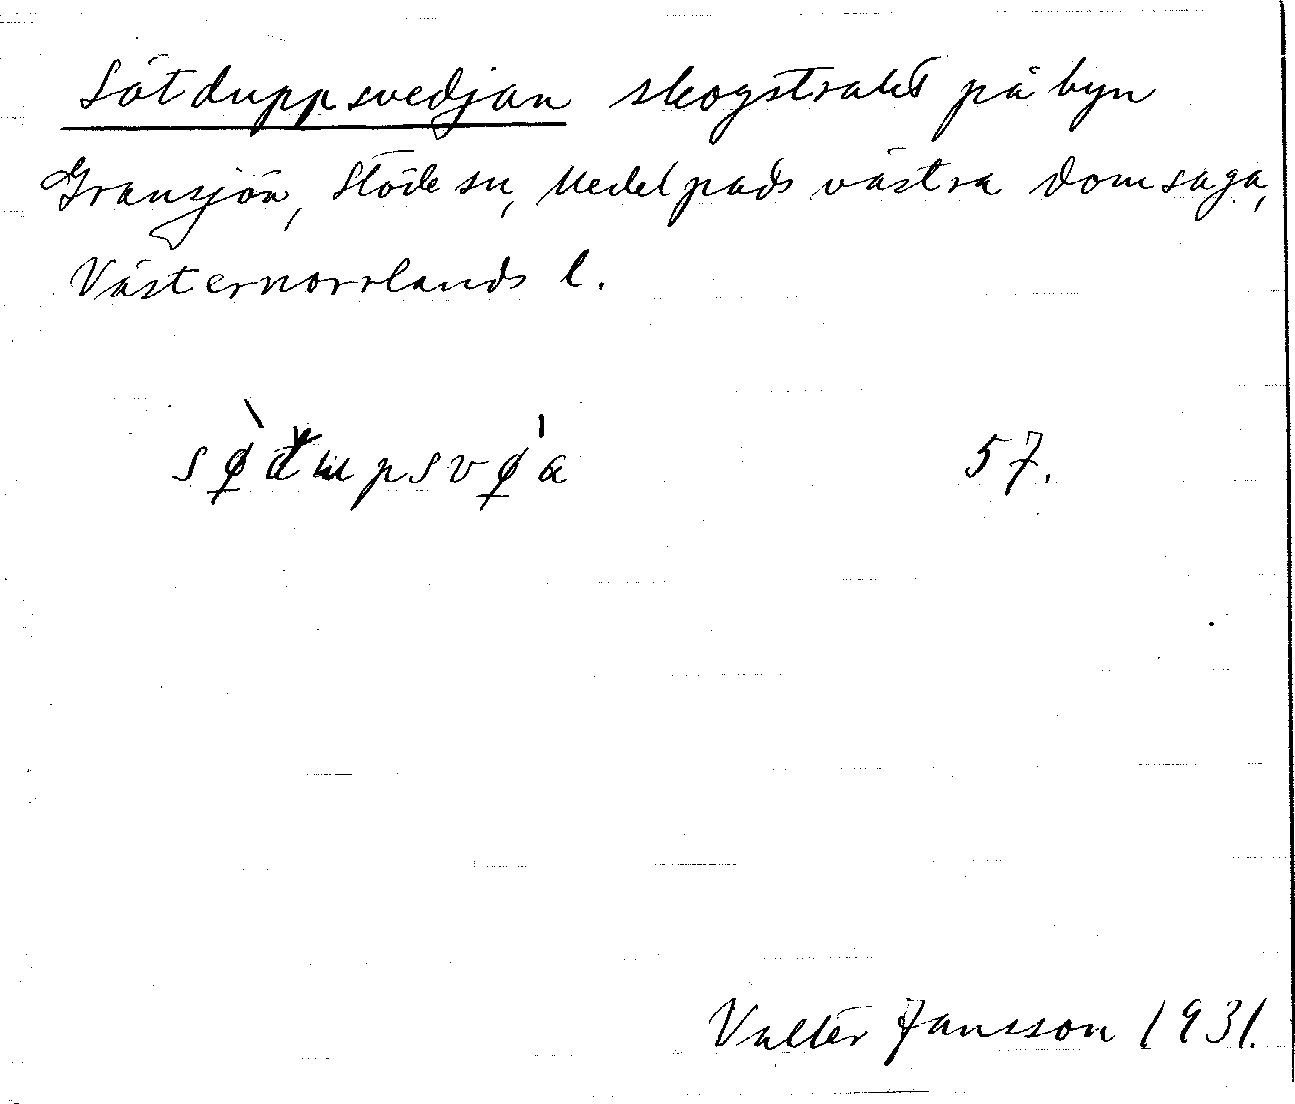 Sötduppsvedjan skogstrakt på byn
Gransjön, Stöde sn, Medelpads västra domsaga,
Västernorrlands l.
57.
Valter Jansson 1931.